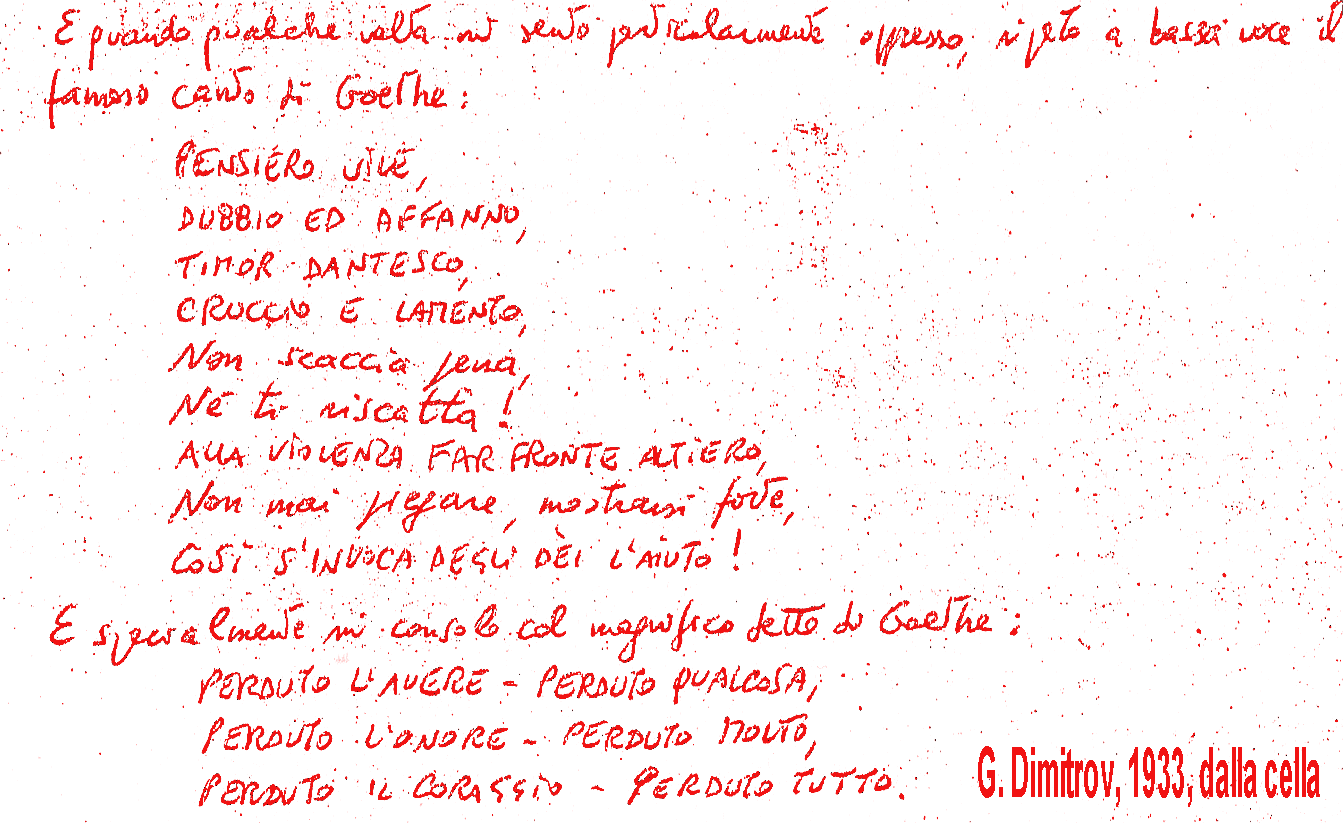 E quando qualche volta mi sento particolarmente oppresso, ripeto a bassa voce il
famoso canto di Goethe:
PENSIERO VILE,
DUBBIO ED AFFANNO,
TIMOR DANTESCO,
CRUCCIO E LAMENTO,
Non scaccia pena,
Né ti riscatta!
ALLA VIOLENZA FAR FRONTE ALTIERO,
Non mai piegare, mostrarsi forte,
COSÌ S'INVOCA DEGLI DÈI L'AIUTO!
E specialmente mi consolo col magnifico detto di Goethe:
PERDUTO L'AVERE - PERDUTO QUALCOSA,
PERDUTO L'ONORE - PERDUTO MOLTO,
PERDUTO IL CORAGGIO - PERDUTO TUTTO.
G. Dimitrov, 1933, dalla cella